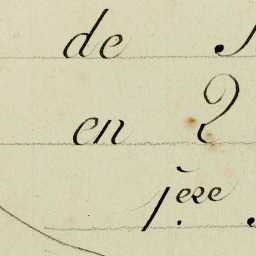 de
en 2
1ère